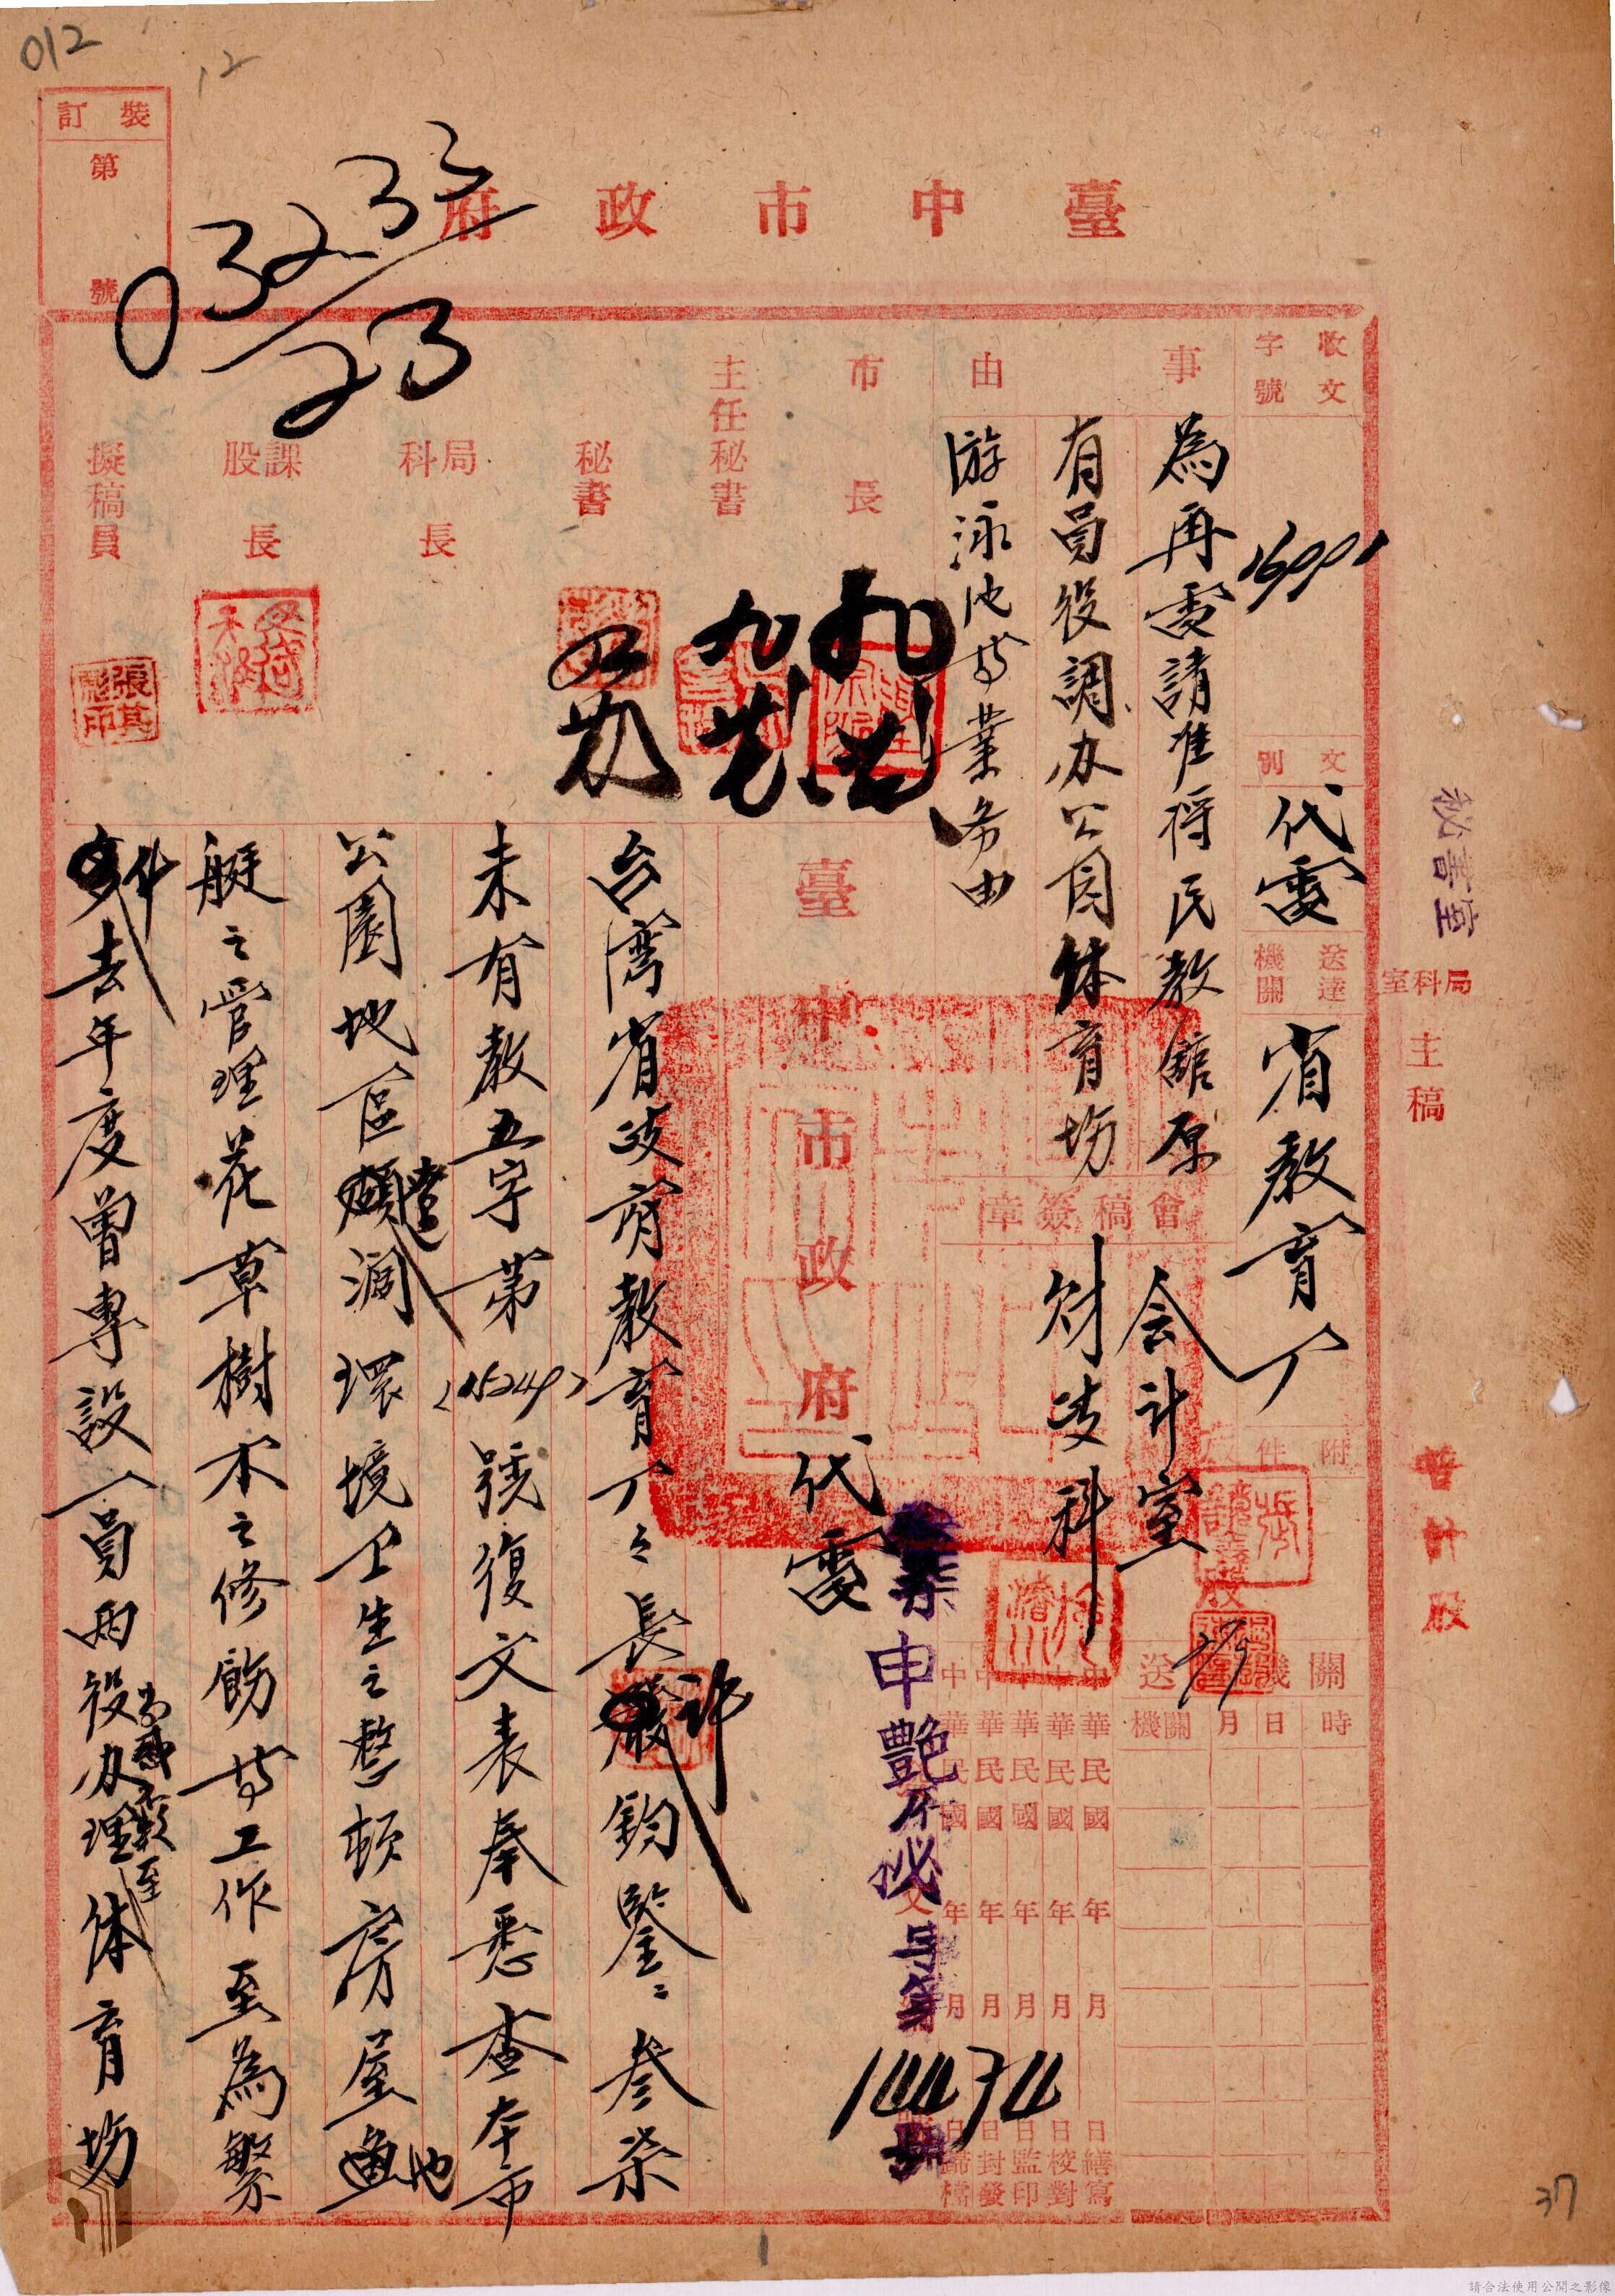 012
12
裝訂
第
號
臺中市政府
032.35
23
收文
字號
16091
文別
代電
送達
機關
省教育厅
附件
事由
為再電請准將民教館原
有員役調办公园体育场
游泳池等業务由
會稿簽章
会计室
財政科
市長
主任秘書
秘書
局科長
課股長
擬稿員
張其彫印
秘書室
局科室
主稿
股
送機關
機關
月
日
時
中華民國年月日繕寫
中華民國年月日校對
中華民國年月日監印
中華民國年月日封發
中華民國年月日歸檔
臺中市政府代電
申艷府祕字第
144374
號
台湾省政府教育厅厅長許鈞鑒:叁柒
未有教五字第(15249)號復文表奉悉查本市
公園地區遼濶環境卫生之整頓房屋池
艇之管理花草樹木之修飾等工作至為繁
去年度曾專設一員兩役办理尚感不敷至体育场
37
1
請合法使用公開之影像